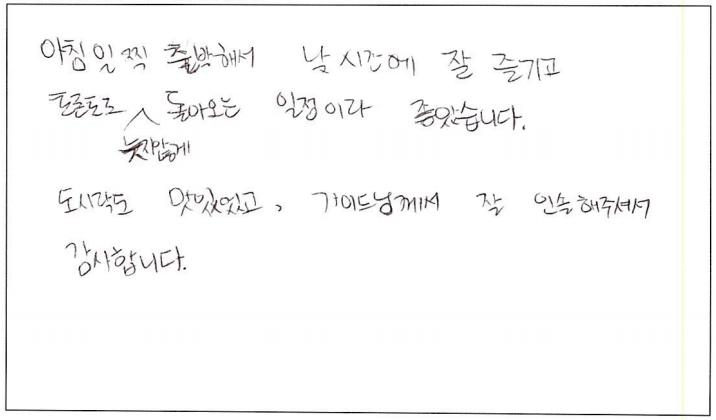 아침 일찍 출발해서 낮 시간에 잘 즐기고
토론토로 돌아오는 일정이라 좋았습니다.
늦지않게
도시락도 맛있었고, 가이드님께서 잘 인솔해주셔서
감사합니다.